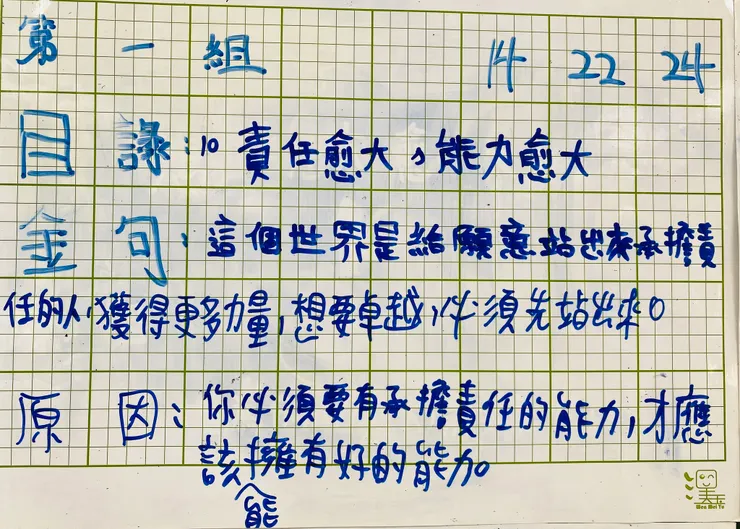 第一組 14 22 24
目錄:10 責任愈大,能力愈大
金句:這個世界是給願意站出來承擔責
任的人,獲得更多力量,想要卓越,必須先站出來。
原因:你必須要有承擔責任的能力,才應
該擁有好的能力。
能